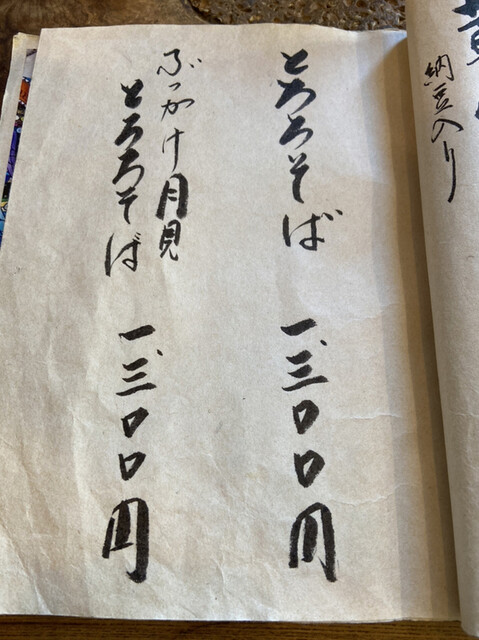 納豆入り
とろろそば 一、三〇〇円
ぶっかけ月見
とろろそば 一、三〇〇円